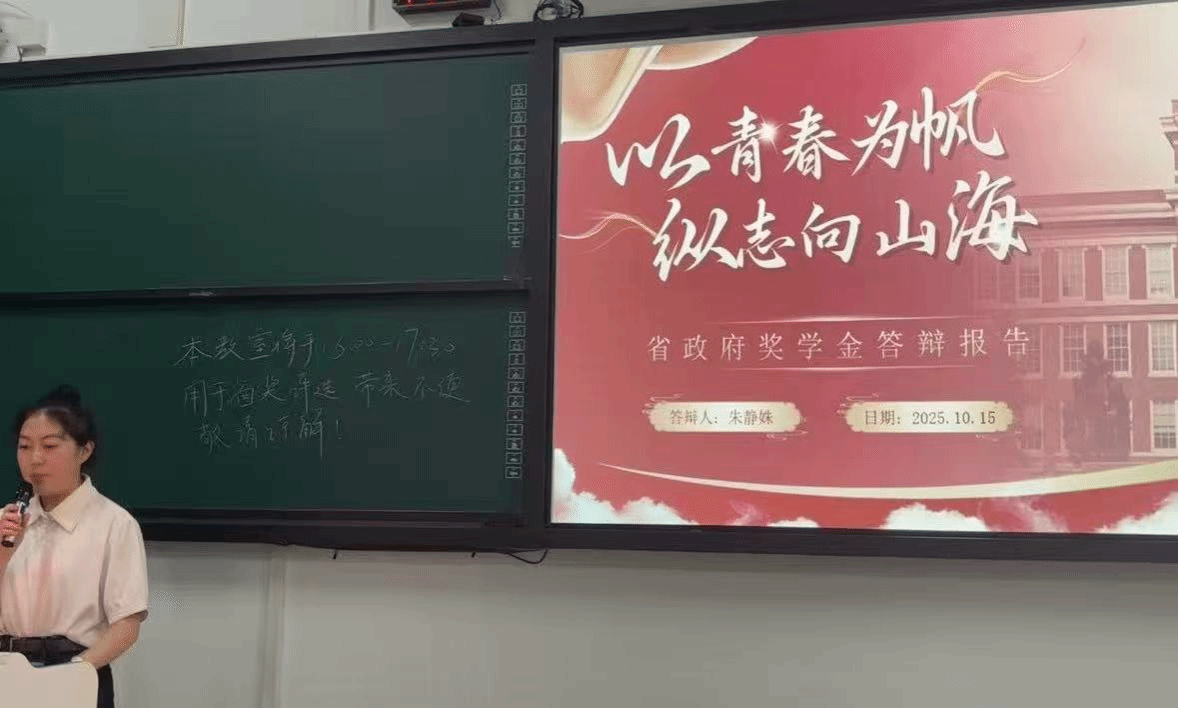 本教室将于15:00-17:30
用于国奖评选 带来不便
敬请谅解!
以青春为帆
纵志向山海
省政府奖学金答辩报告
答辩人：朱静姝
日期：2025.10.15